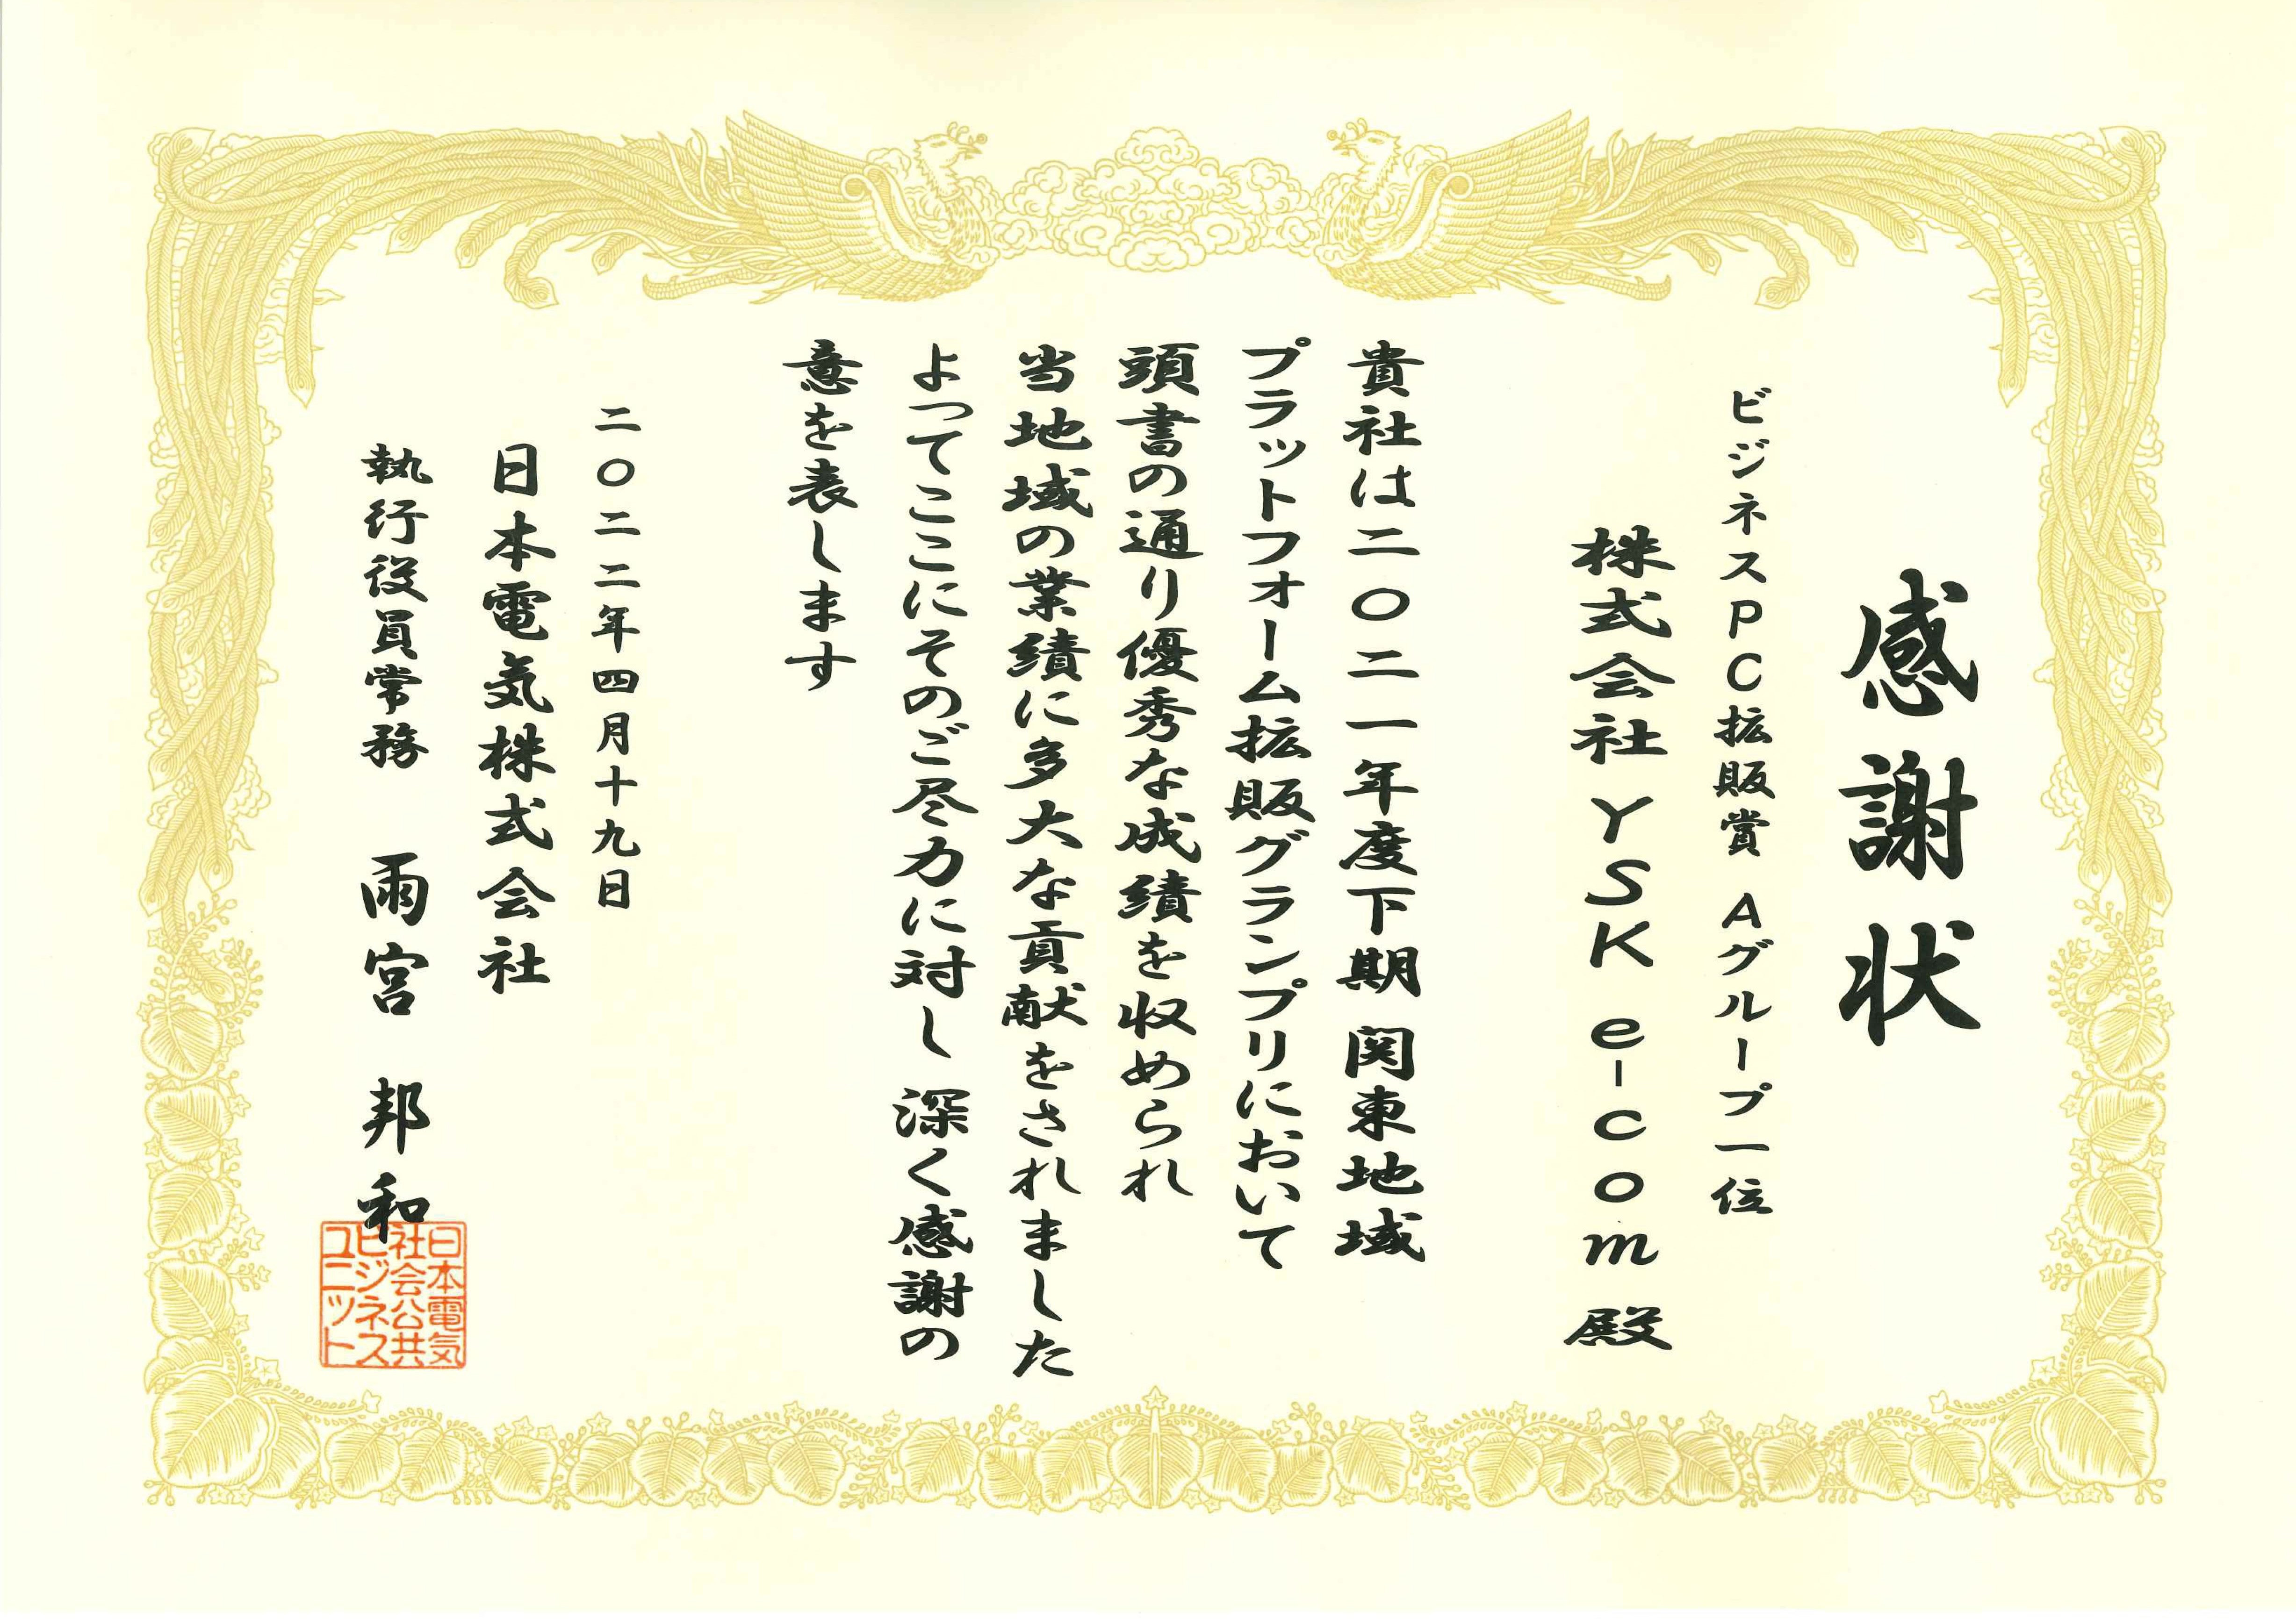 感謝状
ビジネスPC拡販賞 Aグループ一位
株式会社 YSK e-com 殿
貴社は二〇二一年度下期 関東地域
プラットフォーム拡販グランプリにおいて
頭書の通り優秀な成績を収められ
当地域の業績に多大な貢献をされました
よってここにそのご尽力に対し 深く感謝の
意を表します
二〇二二年四月十九日
日本電気株式会社
執行役員常務 雨宮 邦和
日本電気
社会公共
ビジネス
ユニット